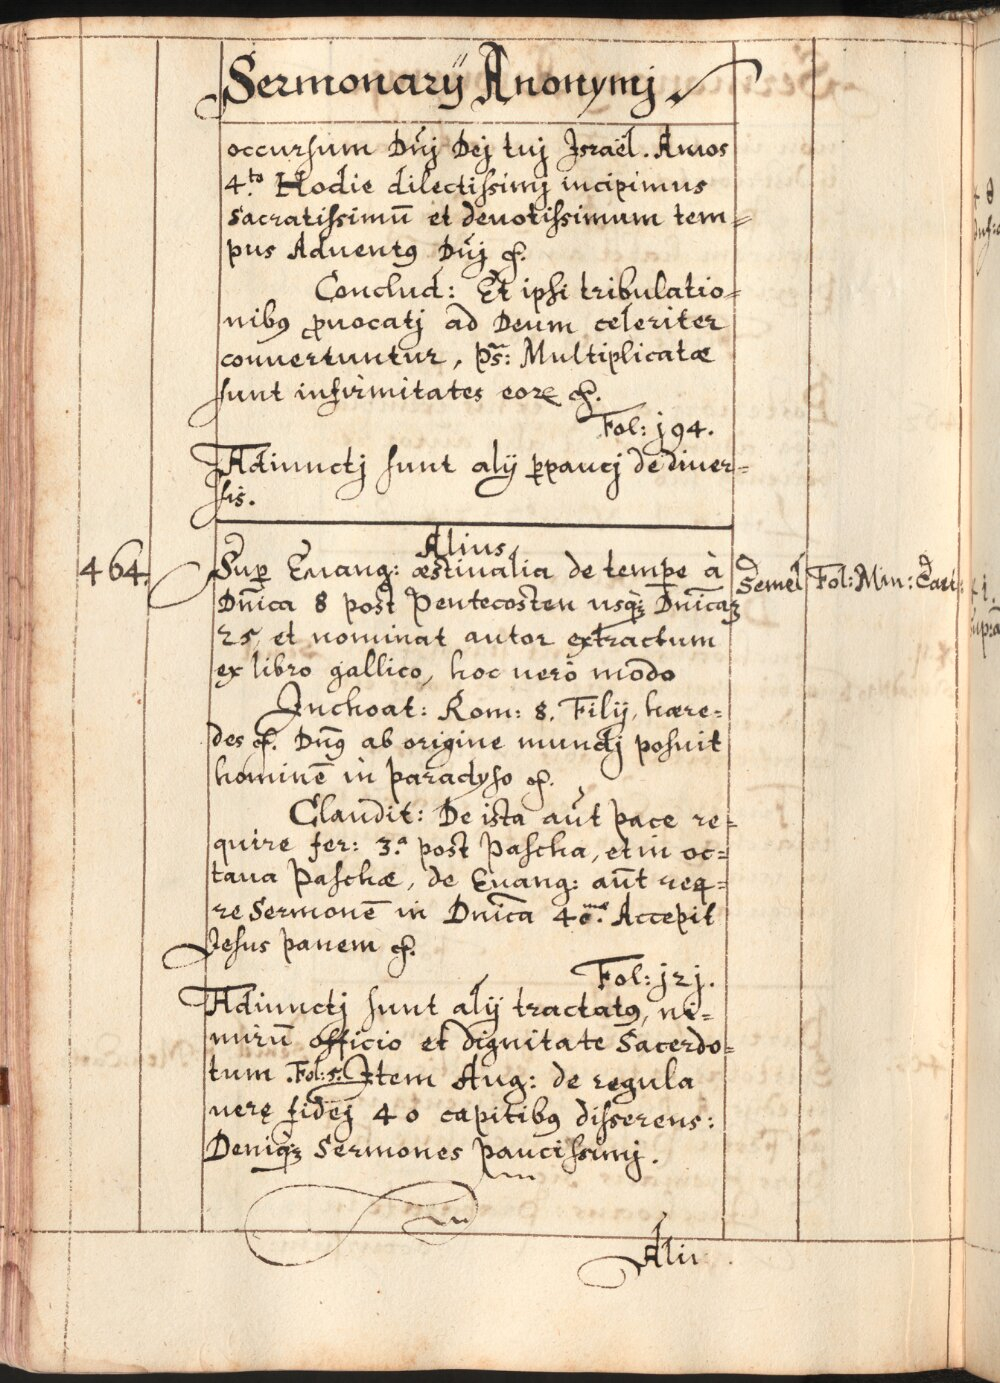 Sermonarÿ Anonymj
occursum Dn̄j Dej tuj Jsraël. Amos
4.to Hodie dilectissimj incipimus
Sacratissimū et deuotissimum tem=
pus Aduentꝰ Dn̄j &.
Conclud: Et ipsi tribulatio=
nibꝰ ꝓuocatj ad Deum celeriter
conuertuntur, ps̄: Multiplicatæ
sunt infirmitates eoꝝ &.
Fol: j94.
Adiunctj sunt alÿ ꝑpaucj de diuer=
sis.
Alius
464. Suꝑ Euang: æstiualia de tempe à Semel Fol: Min: Cart:
Dn̄ica 8 post Pentecosten usqꝫ Dn̄icaꝫ
25, et nominat autor extractum
ex libro gallico, hoc uerò modo
Jnchoat: Rom: 8. Filÿ, hære=
des &. Dn̄ꝰ ab origine mundj posuit
hominē in paradyso &.
Claudit: De ista aūt pace re=
quire fer: 3.a post Pascha, et in oc=
taua Paschæ, de Euang: aūt req=
re Sermonē in Dn̄ica 4o.mæ Accepit
Jesus panem &.
Fol: j2j.
Adiunctj sunt alÿ tractatꝰ, ni=
mirū officio et dignitate Sacerdo=
tum .Fol: 5. Jtem Aug: de regula
uerę fidej 40 capitibꝰ disserens:
Deniqꝫ Sermones paucissimj.
Alii